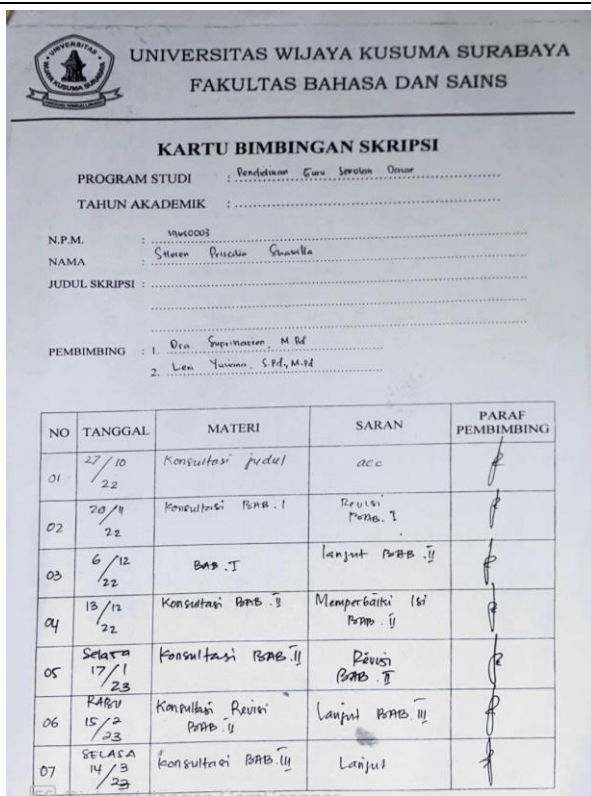 UNIVERSITAS WIJAYA KUSUMA SURABAYA
FAKULTAS BAHASA DAN SAINS
KARTU BIMBINGAN SKRIPSI
PROGRAM STUDI : Pendidikan Guru Sekolah Dasar
TAHUN AKADEMIK :
N.P.M. :
NAMA : Priscilia
JUDUL SKRIPSI :
PEMBIMBING : 1. Dra. M.Pd
2. S.Pd., M.Pd
NO TANGGAL MATERI SARAN PARAF PEMBIMBING
01 27/10 22 Konsultasi judul acc
02 22 Konsultasi BAB. I Revisi BAB. I
03 6/12 22 BAB. I lanjut BAB. II
04 13/12 22 Konsultasi BAB. II Memperbaiki Isi BAB. II
05 Selasa 17/1 23 Konsultasi BAB. II Revisi BAB. II
06 RABU 15/2 23 Konsultasi Revisi BAB. II Lanjut BAB. III
07 SELASA 14/3 23 Konsultasi BAB. III Lanjut